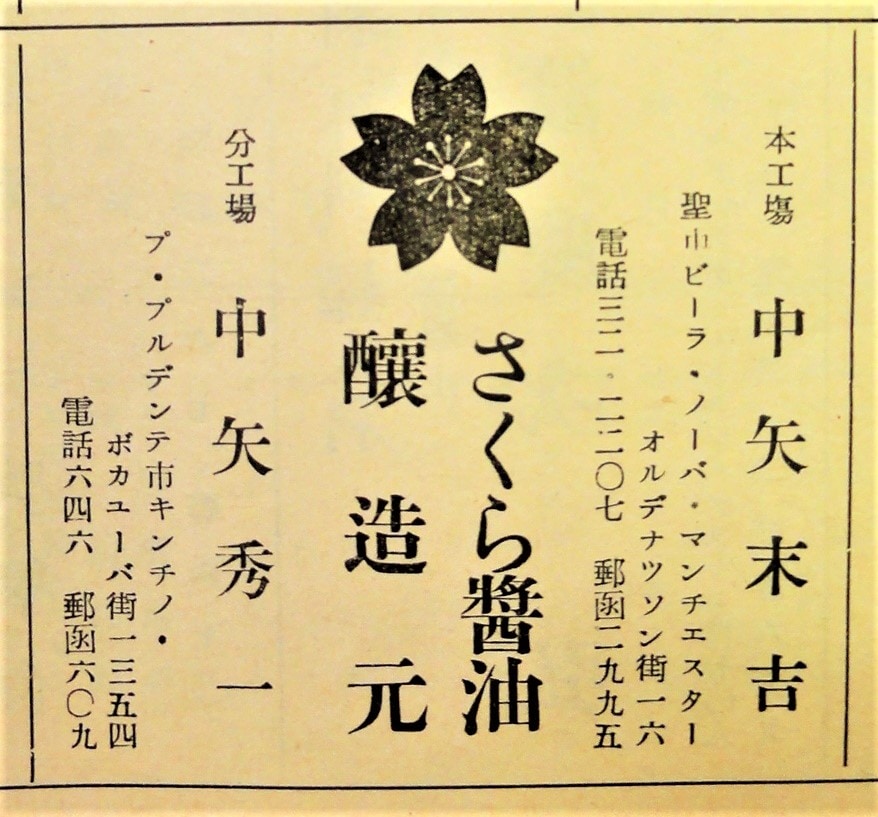 本工場
中矢末吉
聖市ビーラ・ノーバ・マンチエスター
オルデナツソン街一六
電話三二・二二〇七 郵函二九九五
さくら醬油
釀造元
分工場
中矢秀一
プ・プルデンテ市キンチノ・
ボカユーバ街一三五四
電話六四六 郵函六〇九